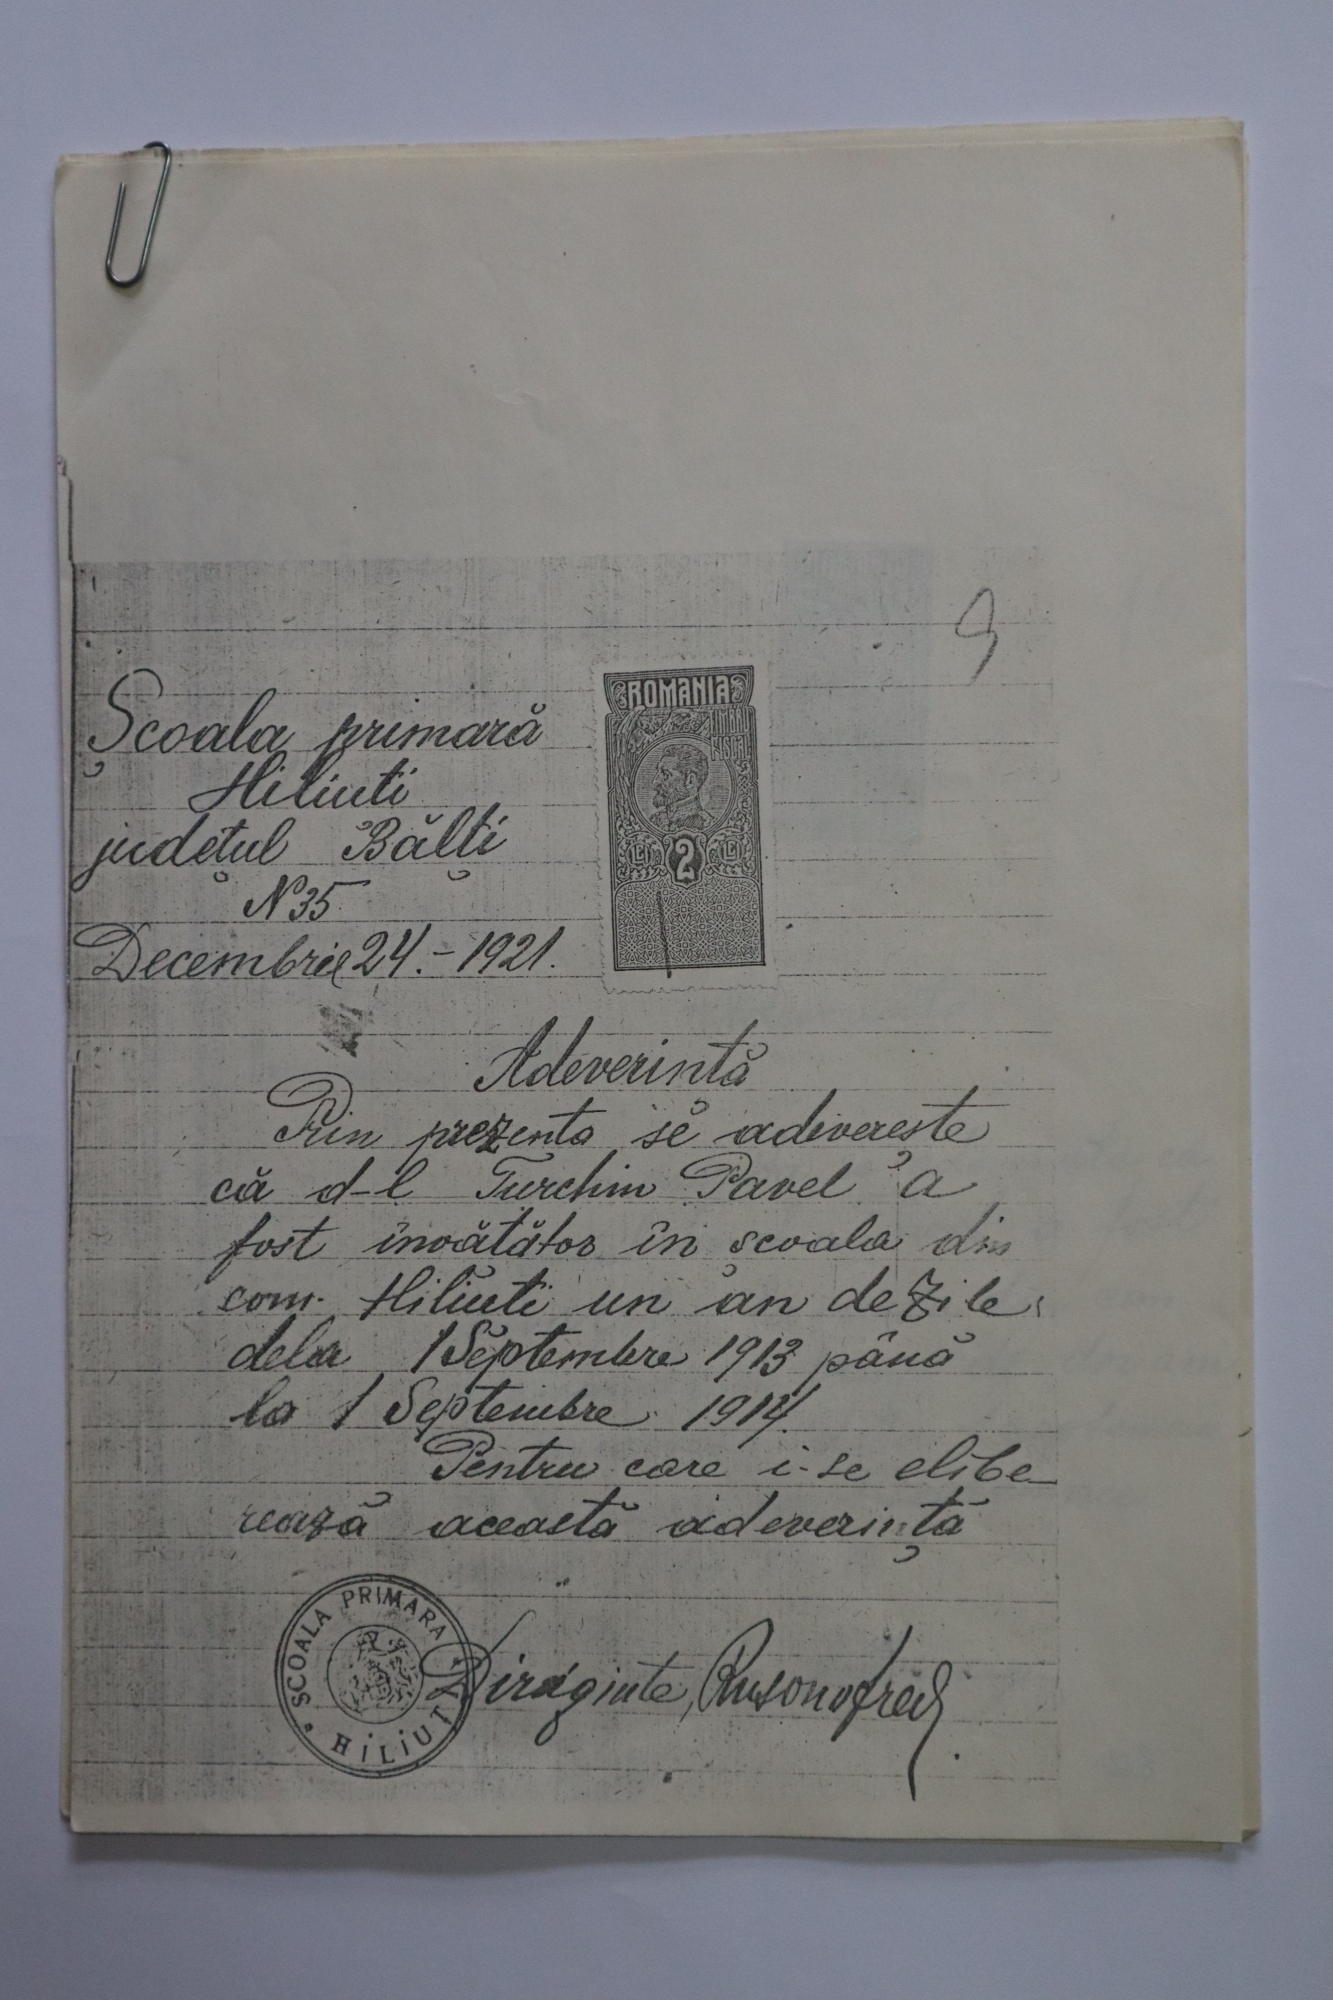 9
Școala primară
Hiliuti
județul Bălți
N 35
Decembrie 24.-1921.
ROMANIA
TIMBRU
FISCAL
LEI 2 LEI
Adeverintă
Prin prezenta se adiverește
că d-l Turchin Pavel a
fost învătător în școala din
com. Hiliuti un an de zile
dela 1 Septembre 1913 până
la 1 Septembre 1914.
Pentru care i-se elibe-
rează această adeverință
SCOALA PRIMARA
HILIUTI
Diriginte,